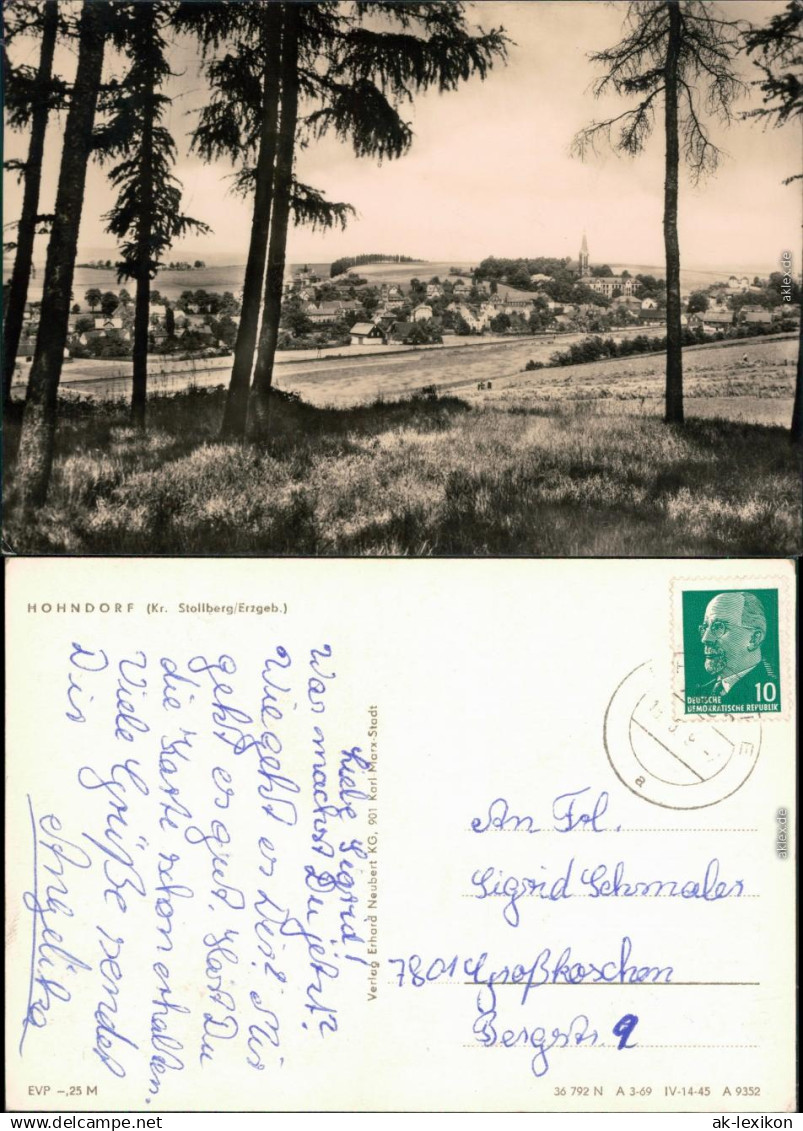 aklex.de
HOHNDORF (Kr. Stollberg/Erzgeb.)
Liebe Sigrid!
Was machst Du jetzt?
Wie geht es Dir? Mir
geht es gut. Hast Du
die Karte schon erhalten.
Viele Grüße sendet
Dir
Angelika
Verlag Erhard Neubert KG, 901 Karl Marx-Stadt
DEUTSCHE
DEMOKRATISCHE REPUBLIK
10
a
An Frl.
Sigrid Schmaler
7801 Großkoschen
Bergstr. 9
aklex.de
EVP –,25 M
36 792 N A 3-69 IV-14-45 A 9352
ak-lexikon.com